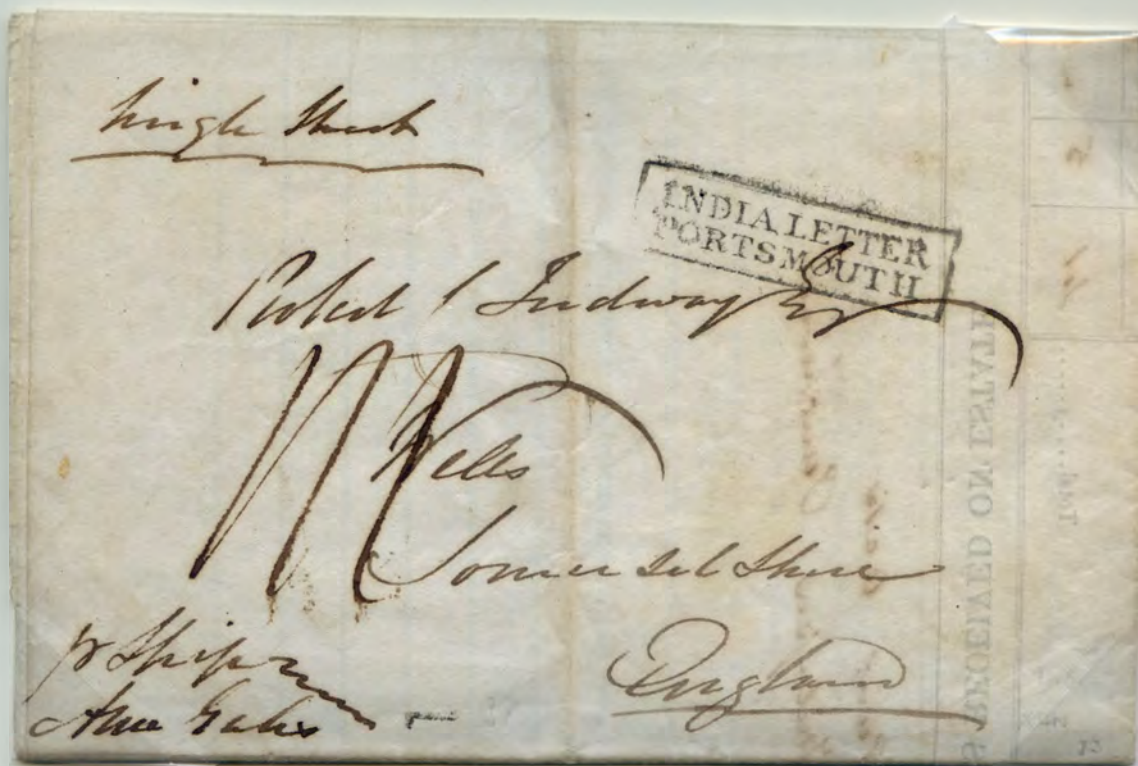 Single Sheet
INDIA LETTER
PORTSMOUTH
Robert C Tudway Esq
Wells
Somersetshire
England
pr Ship
Ann
RECEIVED ON ESTATE